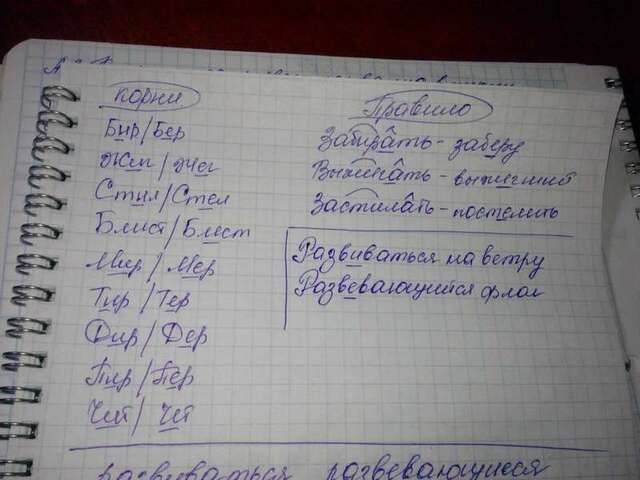 корни
Бир/Бер
Жиг/Жег
Стил/Стел
Блист/Блест
Мир/Мер
Тир/Тер
Дир/Дер
Пир/Пер
Чит/Чет
Правило
Забирать - заберу
Выжигать - выжегший
Застилать - постелить
Развиваться на ветру
Развевающийся флаг
развиваться развевающиеся